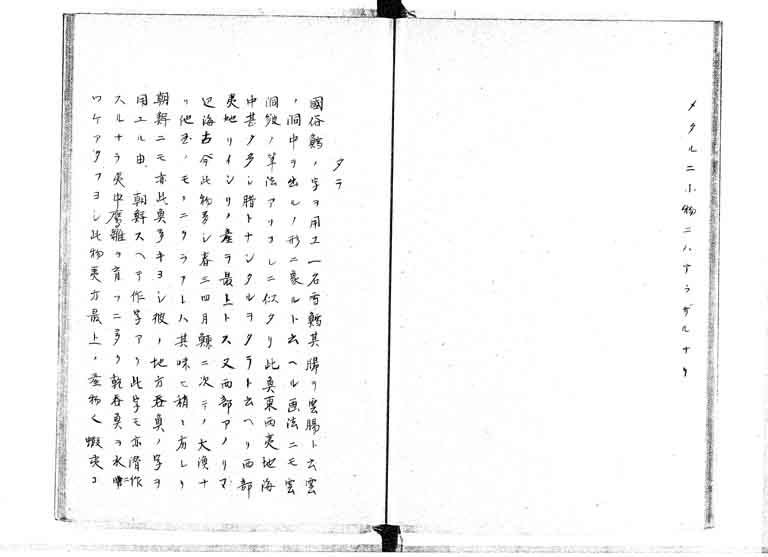 メタルニ小物ニハナラザルナリ
タラ
國俗鱈ノ字ヲ用ユ一名雪鱈其腸ヲ雲腸ト云雲
ノ洞中ヲ出ルノ形ニ象ルト云ヘル画法ニモ雲
洞皴ノ筆法アリコレニ似タリ此魚東西夷地海
中甚タ多シ腊トナシタルヲタラト云ヘリ西部
夷地リイシリノ産ヲ最上トス又西部アノリマ
辺海古今此物多シ春三四月鯟ニ次テノ大漁ナ
リ他国ノモノニクラフトハ其味ヒ稍々劣レリ
朝鮮ニモ亦此魚多キヨシ彼ノ地方呑魚ノ字ヲ
用ユル由 朝鮮スヘテ作字アリ此字モ亦潜作
スルナラ夷中鷹雛ヲ育フニ多ク乾呑魚ヲ水ニ
ワケアタフヨシ此物夷方最上ノ産物く蝦夷コ